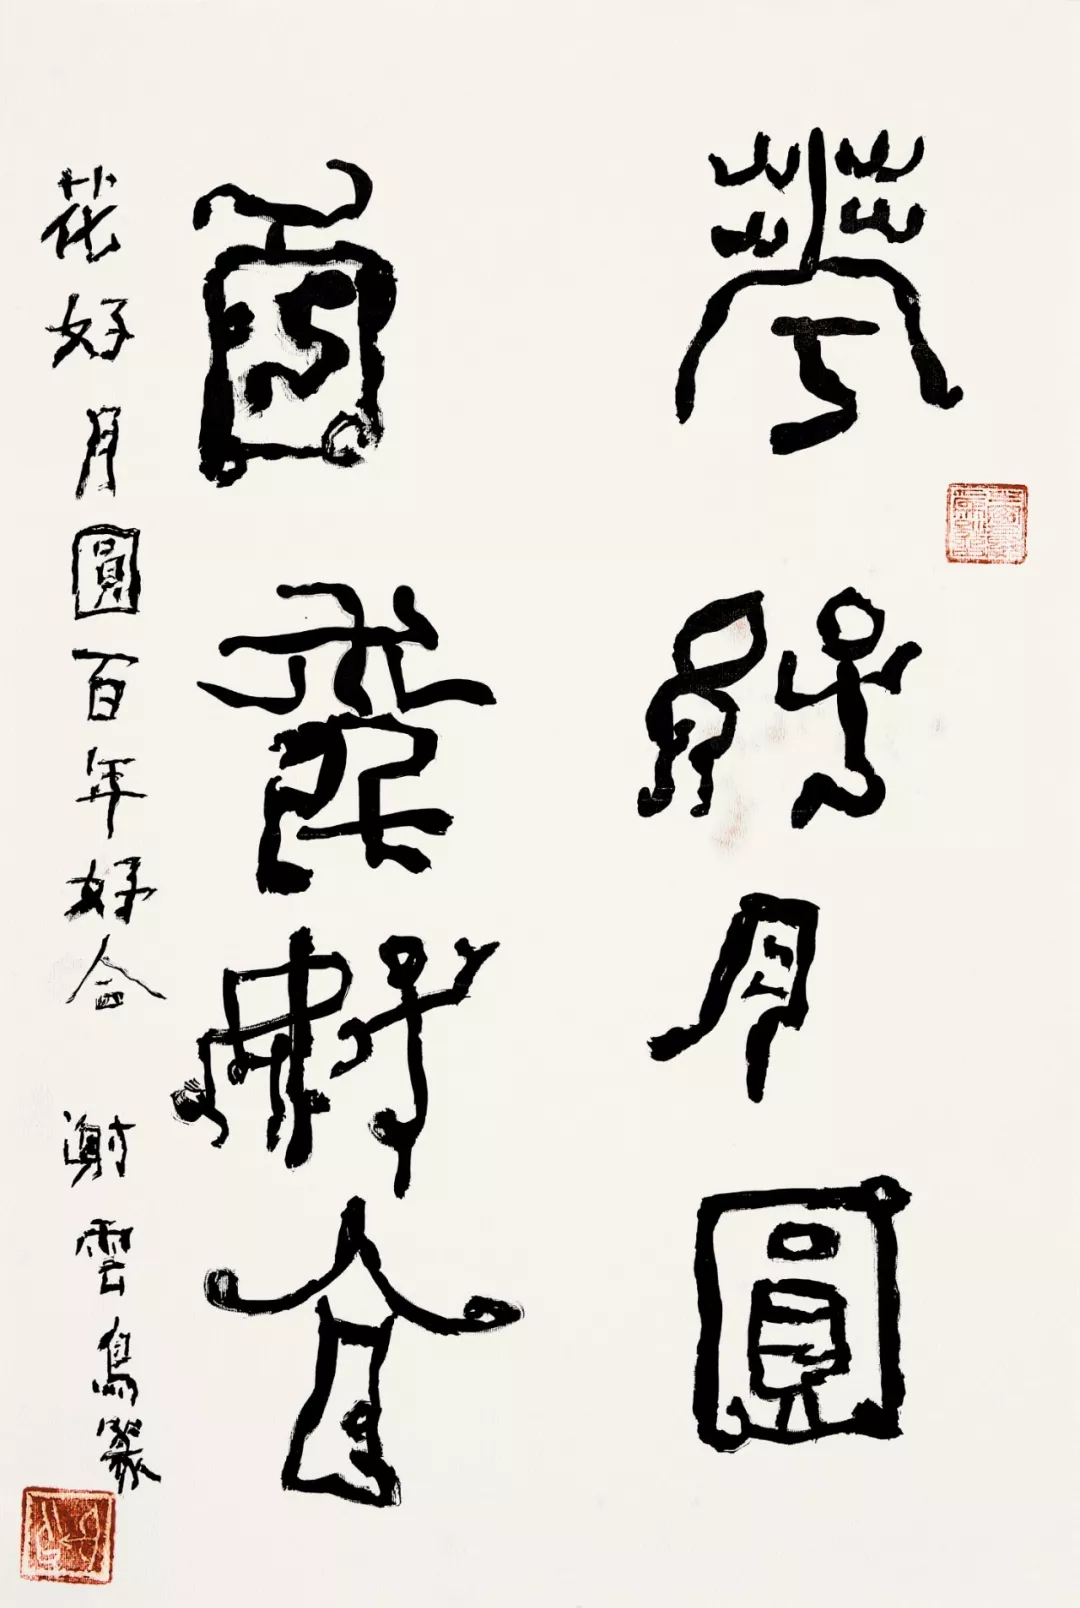 華好月圓
百年好合
花好月圓百年好合 謝雲鳥篆